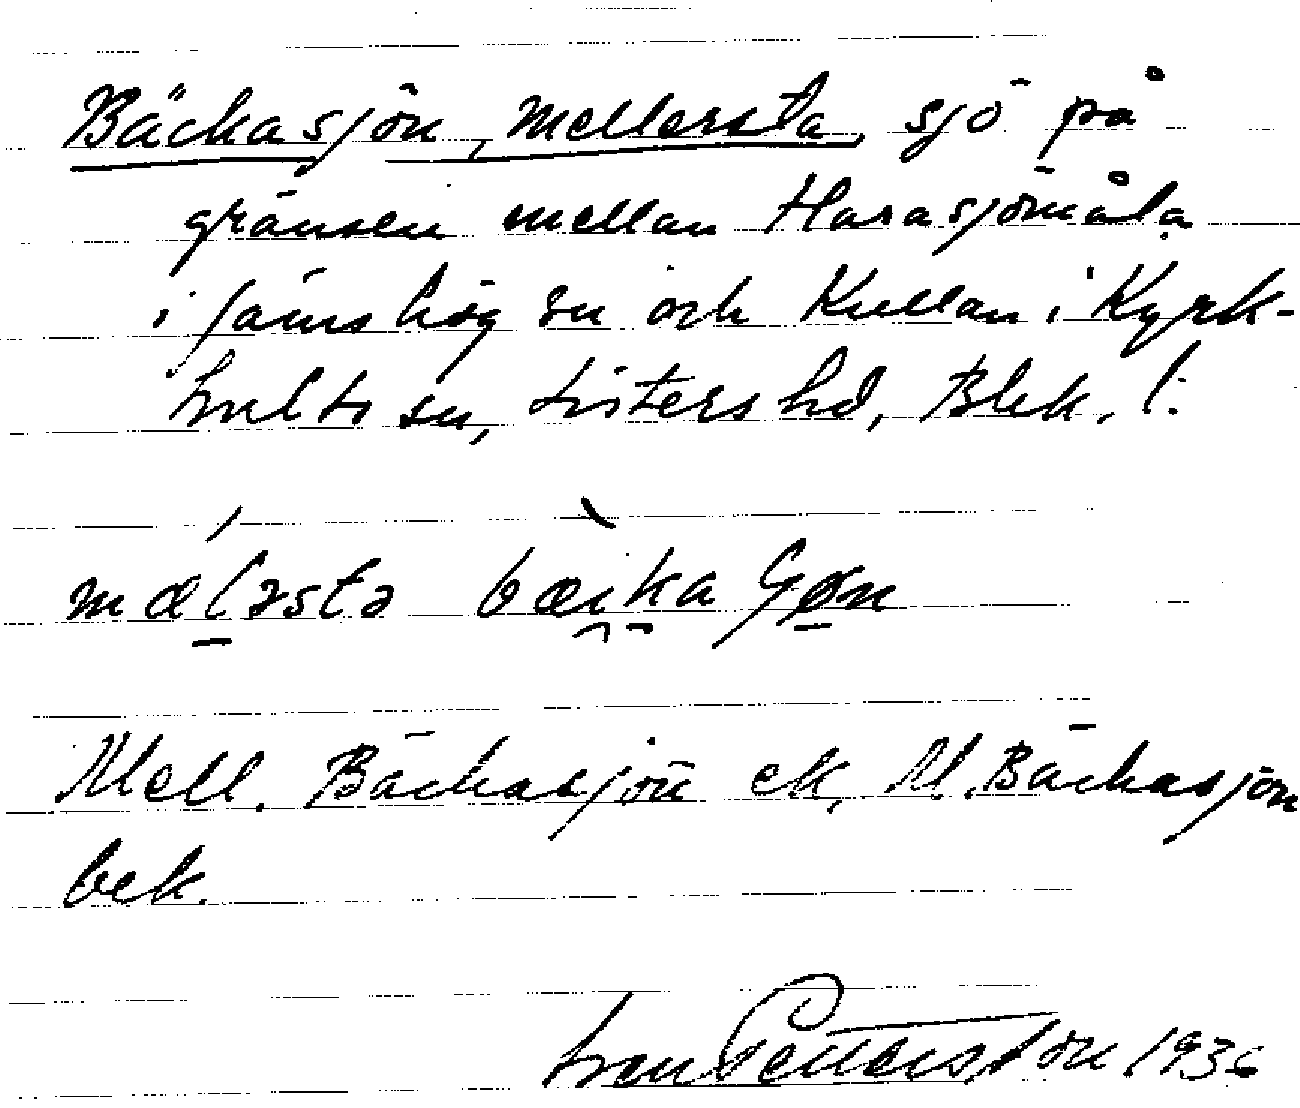 Bäckasjön, mellersta, sjö på
gränsen mellan Harasjömåla
i Jämshög sn och Kullan i Kyrk-
hults sn, Listers hd, Blek. l.
mæləsta bæika
Mell. Bäckasjön ek, M. Bäckasjön
bek.
Pettersson 1936